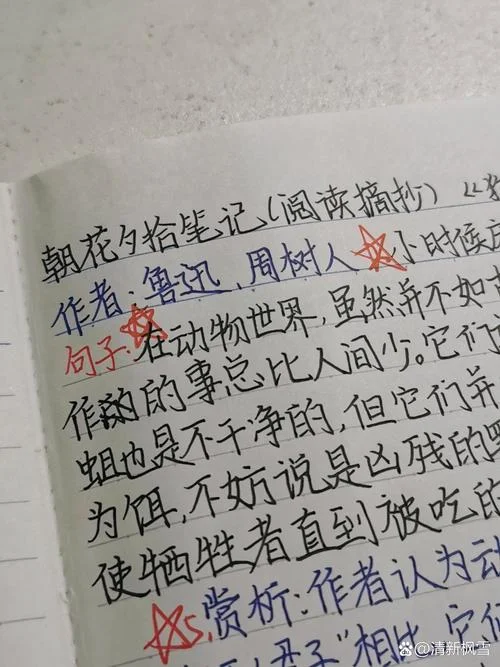 朝花夕拾笔记(阅读摘抄)《
作者:鲁迅,周树人 小时候
句子:在动物世界,虽然并不如
作的事总比人间少。它们
蛆也是不干净的,但它们并
为饵,不妨说是凶残的
使牺牲者直到被吃的
5.赏析:作者认为动
君子"相比,它们
清新枫雪